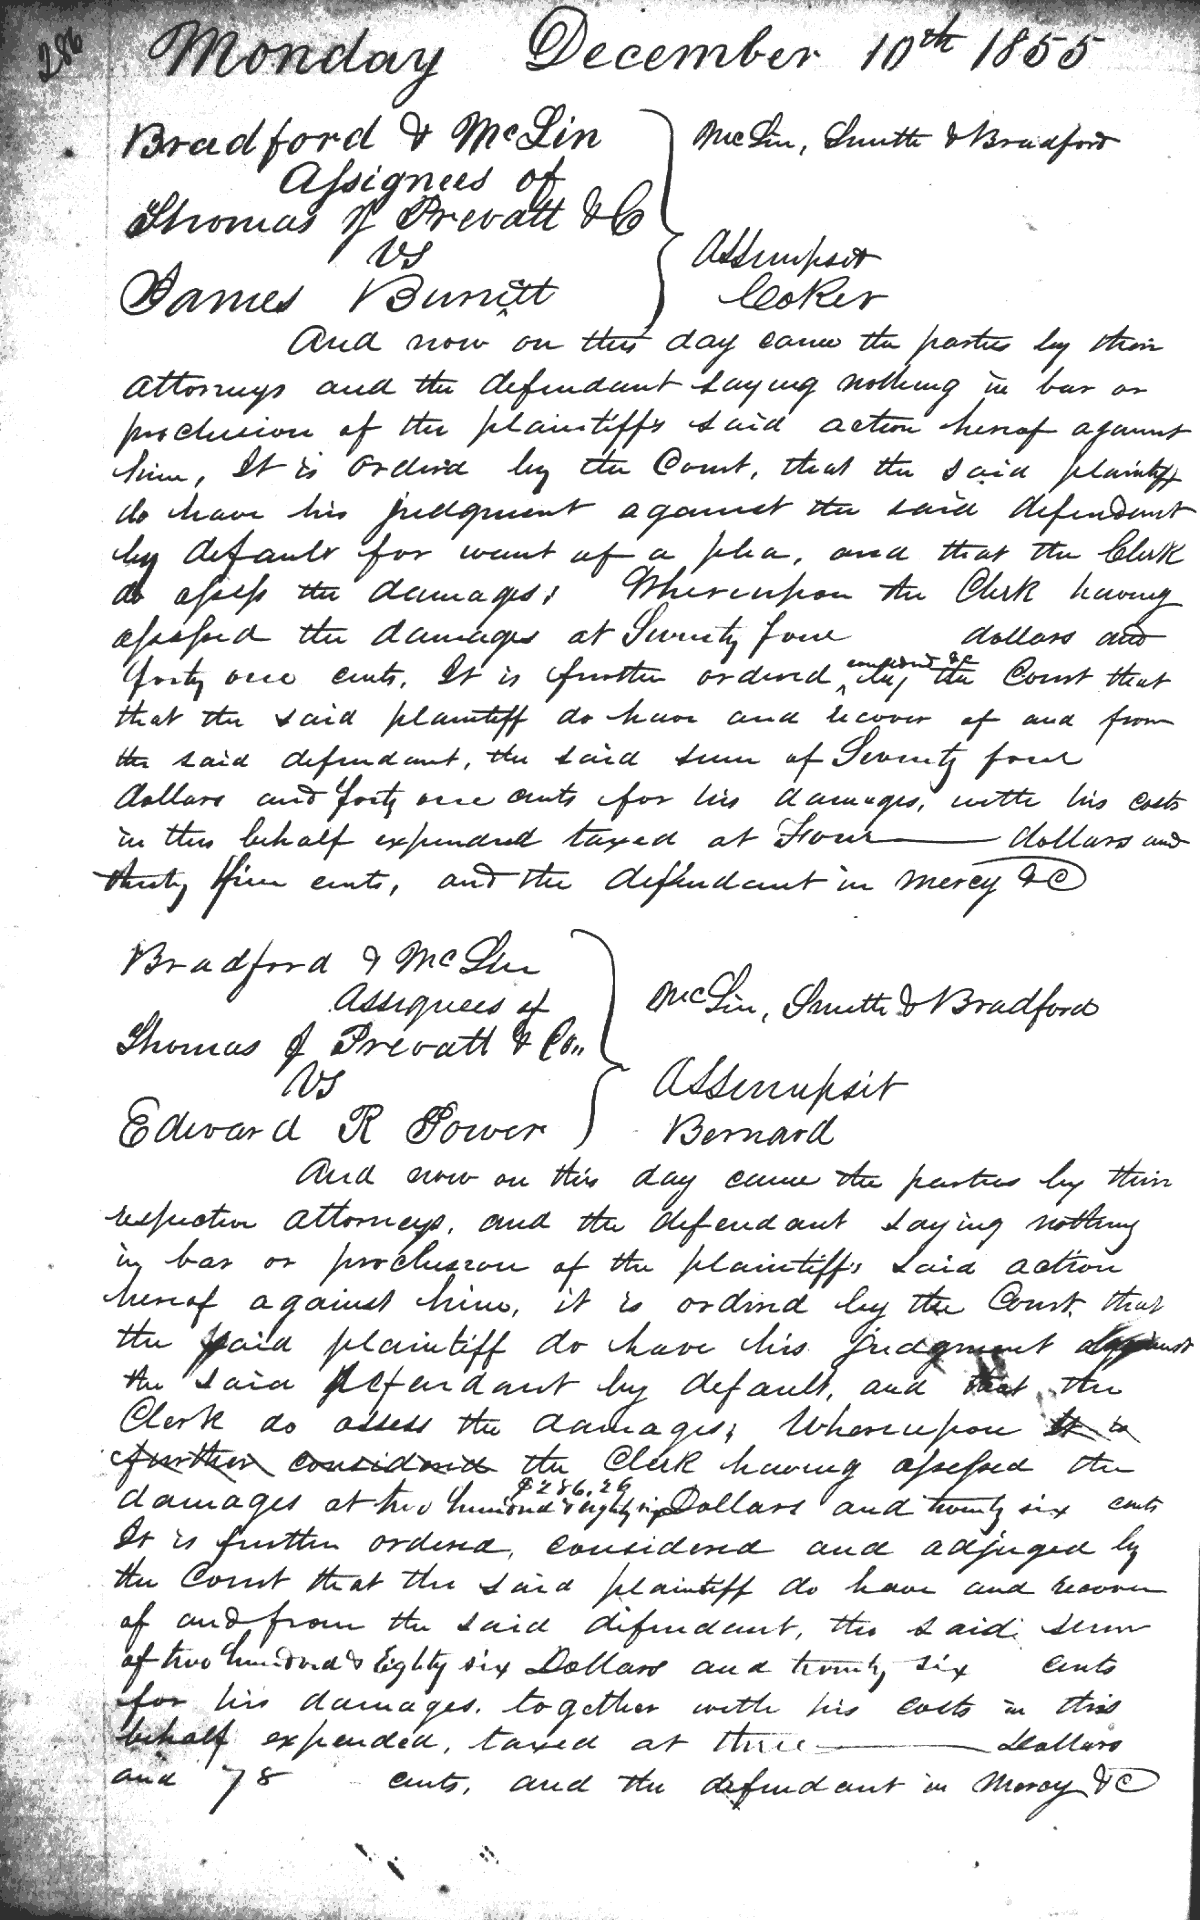 286
Monday December 10th 1855
Bradford & McLin
Assignees of
Thomas J Prevatt & C
vs
James Burnitt
McLin, Smith & Bradford
Assumpsit
Coker
And now on this day came the parties by their
attorneys and the defendant saying nothing in bar or
preclusion of the plaintiff's said action hereof against
him, It is ordered by the Court, that the said plaintiff
do have his judgment against the said defendant
by default for want of a plea, and that the Clerk
do assess the damages; Whereupon the Clerk having
assessed the damages at Seventy four dollars and
forty one cents. It is further ordered considered &c by the Court that
that the said plaintiff do have and recover of and from
the said defendant, the said sum of Seventy four
dollars and forty one cents for his damages, with his costs
in this behalf expended taxed at Four dollars and
thirty five cents, and the defendant in mercy &C
Bradford & McLin
Assignees of
Thomas J Prevatt & Co,,
vs
Edward R Power
McLin, Smith & Bradford
Assumpsit
Bernard
And now on this day came the parties by their
respective attorneys, and the defendant saying nothing
in bar or preclusion of the plaintiff's said action
hereof against him, it is ordered by the Court, that
the said plaintiff do have his judgment against
the said defendant by default, and that the
Clerk do assess the damages; Whereupon It is
further considered the Clerk having assessed the
$286.26
damages at two hundred & eighty six Dollars and twenty six cents
It is further ordered, considered and adjuged by
the Court that the said plaintiff do have and recover
of and from the said defendant, the said sum
of two hundred & Eighty six Dollars and twenty six cents
for his damages, together with his costs in this
behalf expended, taxed at three Dollars
and 78 cents, and the defendant in Mercy &C